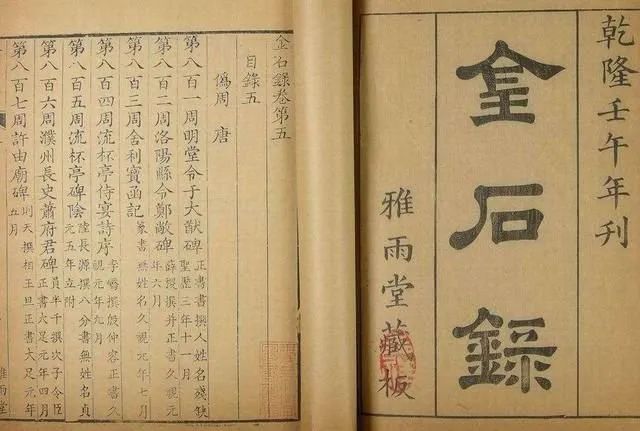 乾隆壬午年刊
金石錄
雅雨堂藏板
金石錄卷第五
目錄五
偽周 唐
第八百一周明堂令于大猷碑 正書書撰人姓名殘缺聖曆三年十一月
第八百二周洛陽縣令鄭敞碑 薛稷撰并正書久視元年六月
第八百三周舍利寶函記 篆書無姓名久視元年七月
第八百四周流杯亭侍宴詩序 李嶠撰殷仲容正書久視元年九月
第八百五周流杯亭碑陰 陸長源撰八分書無姓名貞元五年立附
第八百六周濮州長史蕭府君碑 員半千撰次子令臣正書大足元年四月
第八百七周許由廟碑 則天撰相王旦正書大足元年五月
雅雨堂